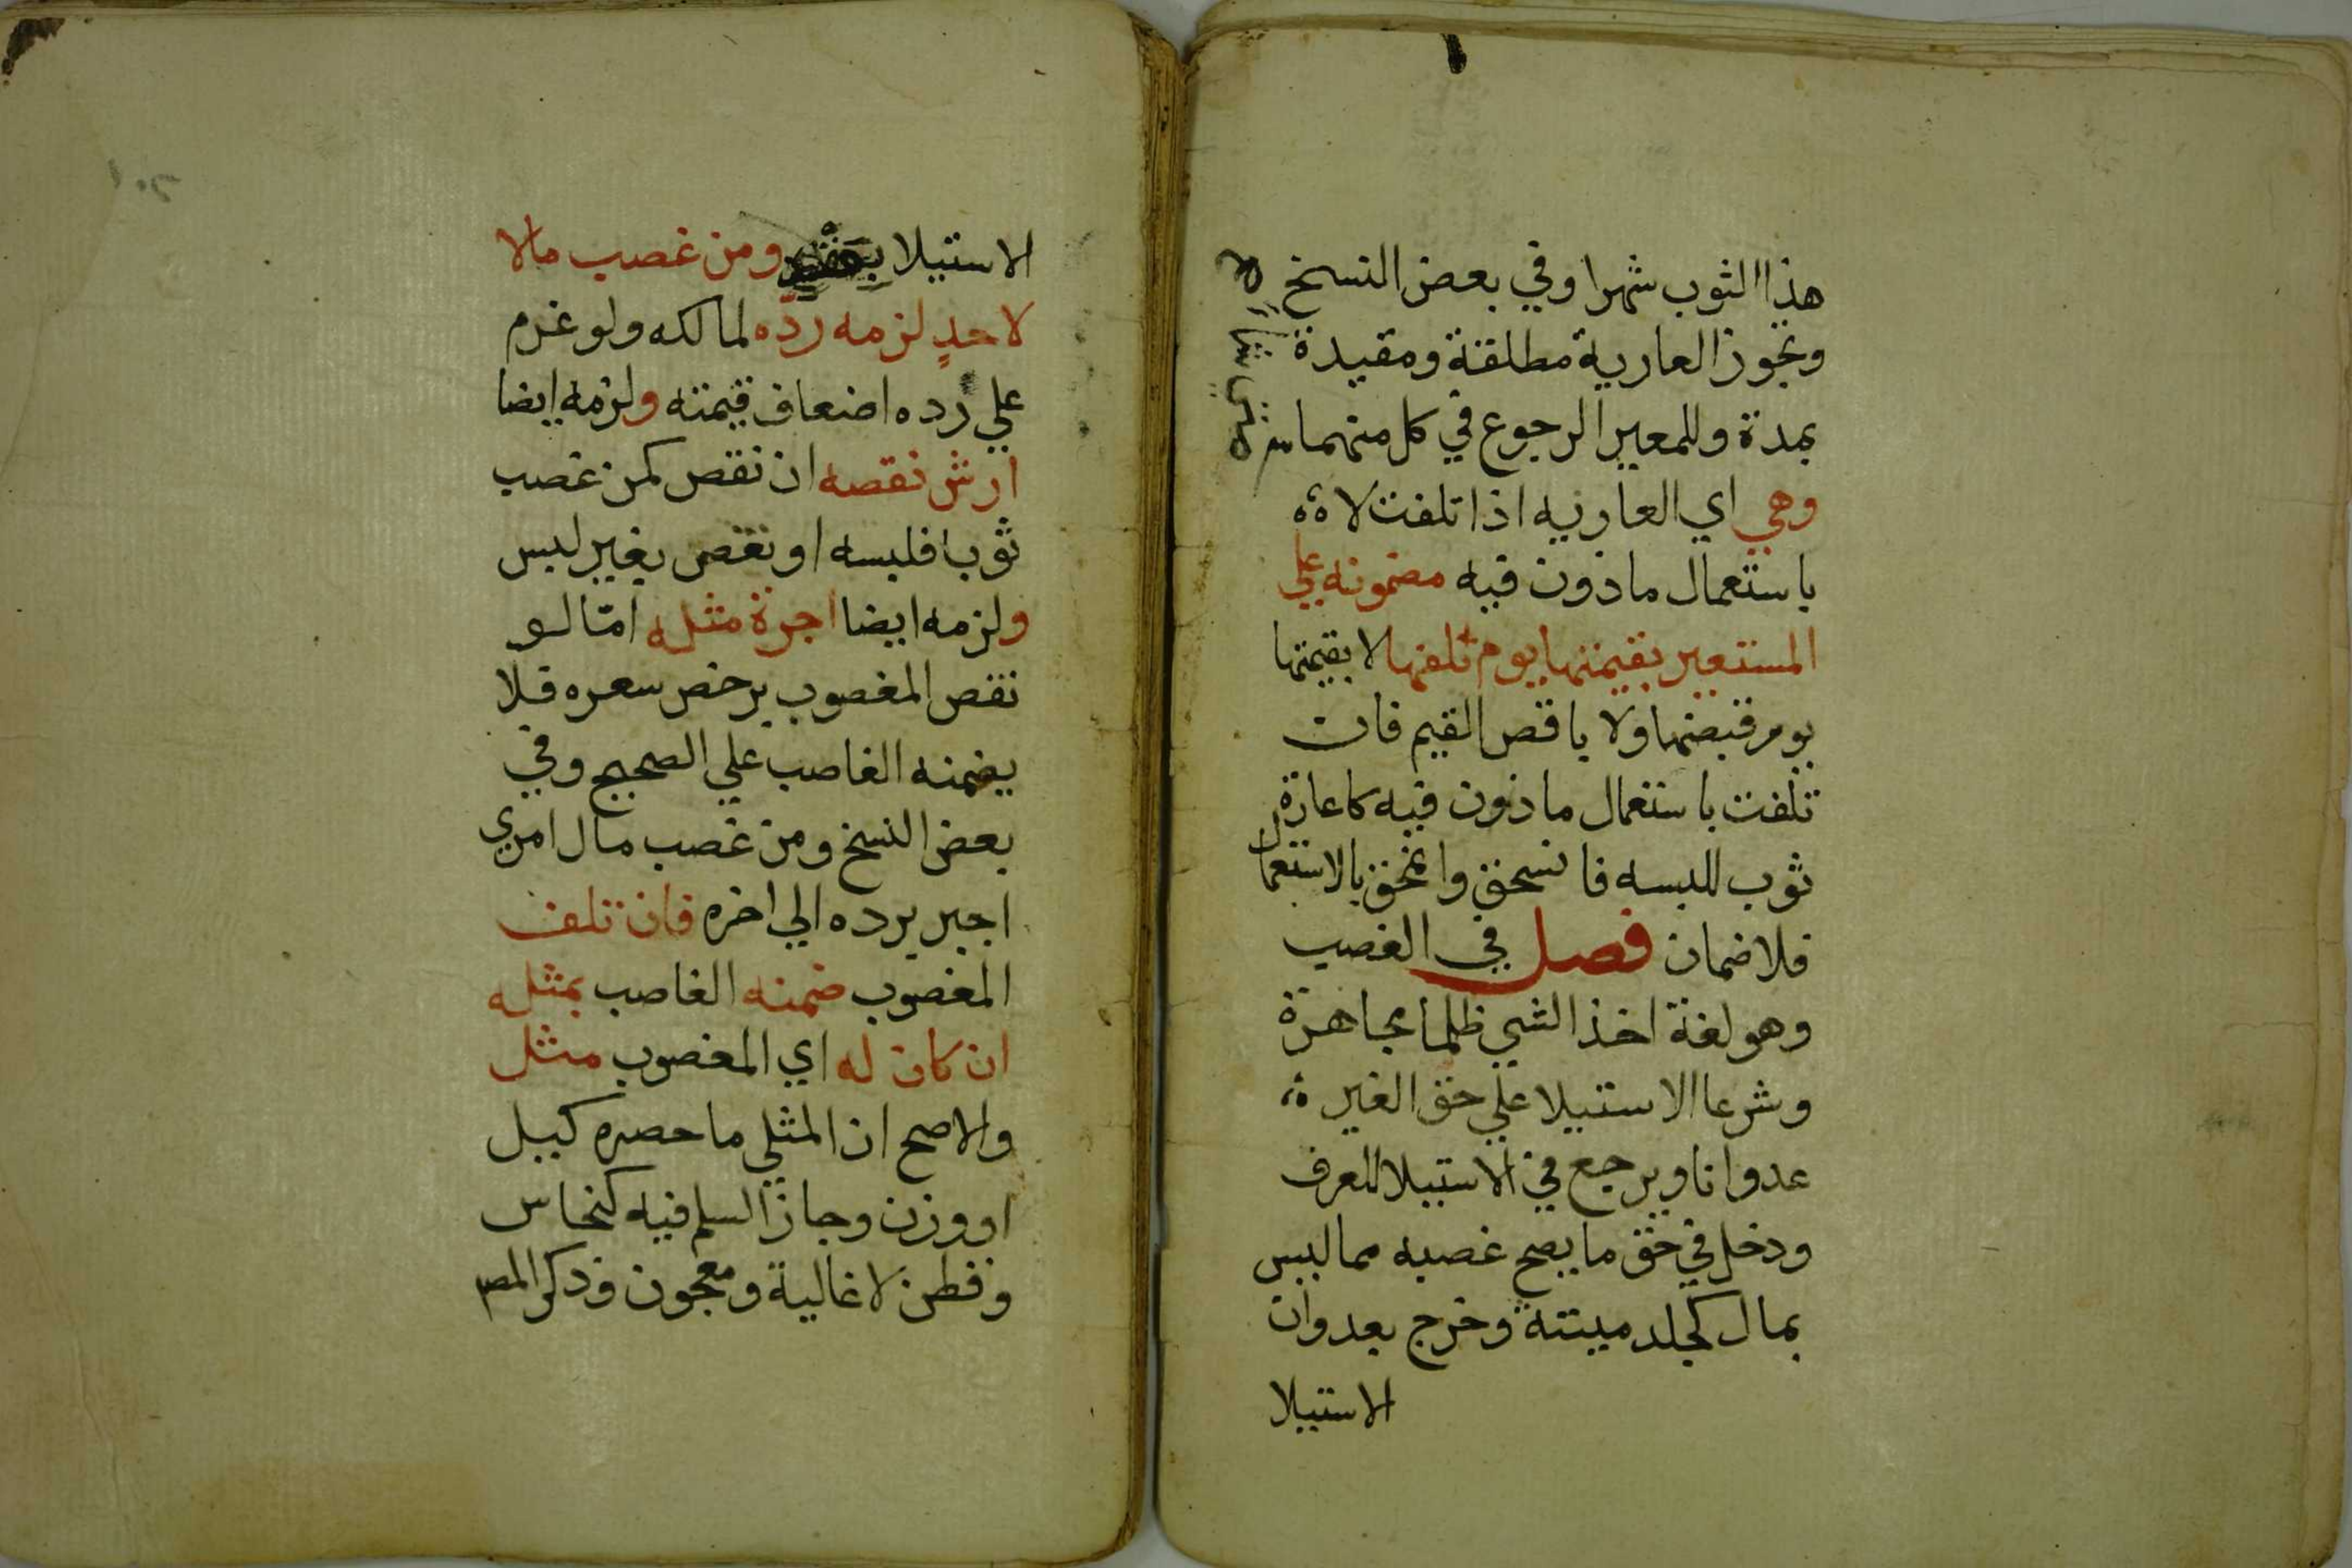 هذا الثوب شهرا وفي بعض النسخ
وتجوز العارية مطلقة ومقيدة
بمدة وللمعير الرجوع في كل منهما
وهي اي العاريه اذا تلفت لا
باستعمال ماذون فيه مضمونه علي
المستعير بقيمتها يوم تلفها لا بقيمتها
يوم قبضها ولا باقص القيم فان
تلفت باستعمال ماذون فيه كاعارة
ثوب للبسه فانسحق وانمحق بالاستعمال
فلا ضمان فصل في الغصب
وهو لغة اخذ الشي ظلما مجاهرة
وشرعا الاستيلا علي حق الغير
عدوانا ويرجع في الاستيلا للعرف
ودخل في حق ما يصح غصبه مما ليس
بمال كجلد ميتة وخرج بعدوان
الاستيلا
الاستيلا بعقد ومن غصب مالا
لاحد لزمه رده لمالكه ولو غرم
علي رده اضعاف قيمته ولزمه ايضا
ارش نقصه ان نقص كمن غصب
ثوبا فلبسه او نقص بغير لبس
ولزمه ايضا اجرة مثله امّا لو
نقص المغصوب برخص سعره فلا
يضمنه الغاصب علي الصحيح وفي
بعض النسخ ومن غصب مال امري
اجبر برده الي اخره فان تلف
المغصوب ضمنه الغاصب بمثله
ان كان له اي المغصوب مثل
والاصح ان المثلي ما حصره كيل
او وزن وجاز السلم فيه كنحاس
وقطن لا غالية ومعجون وذكر المص